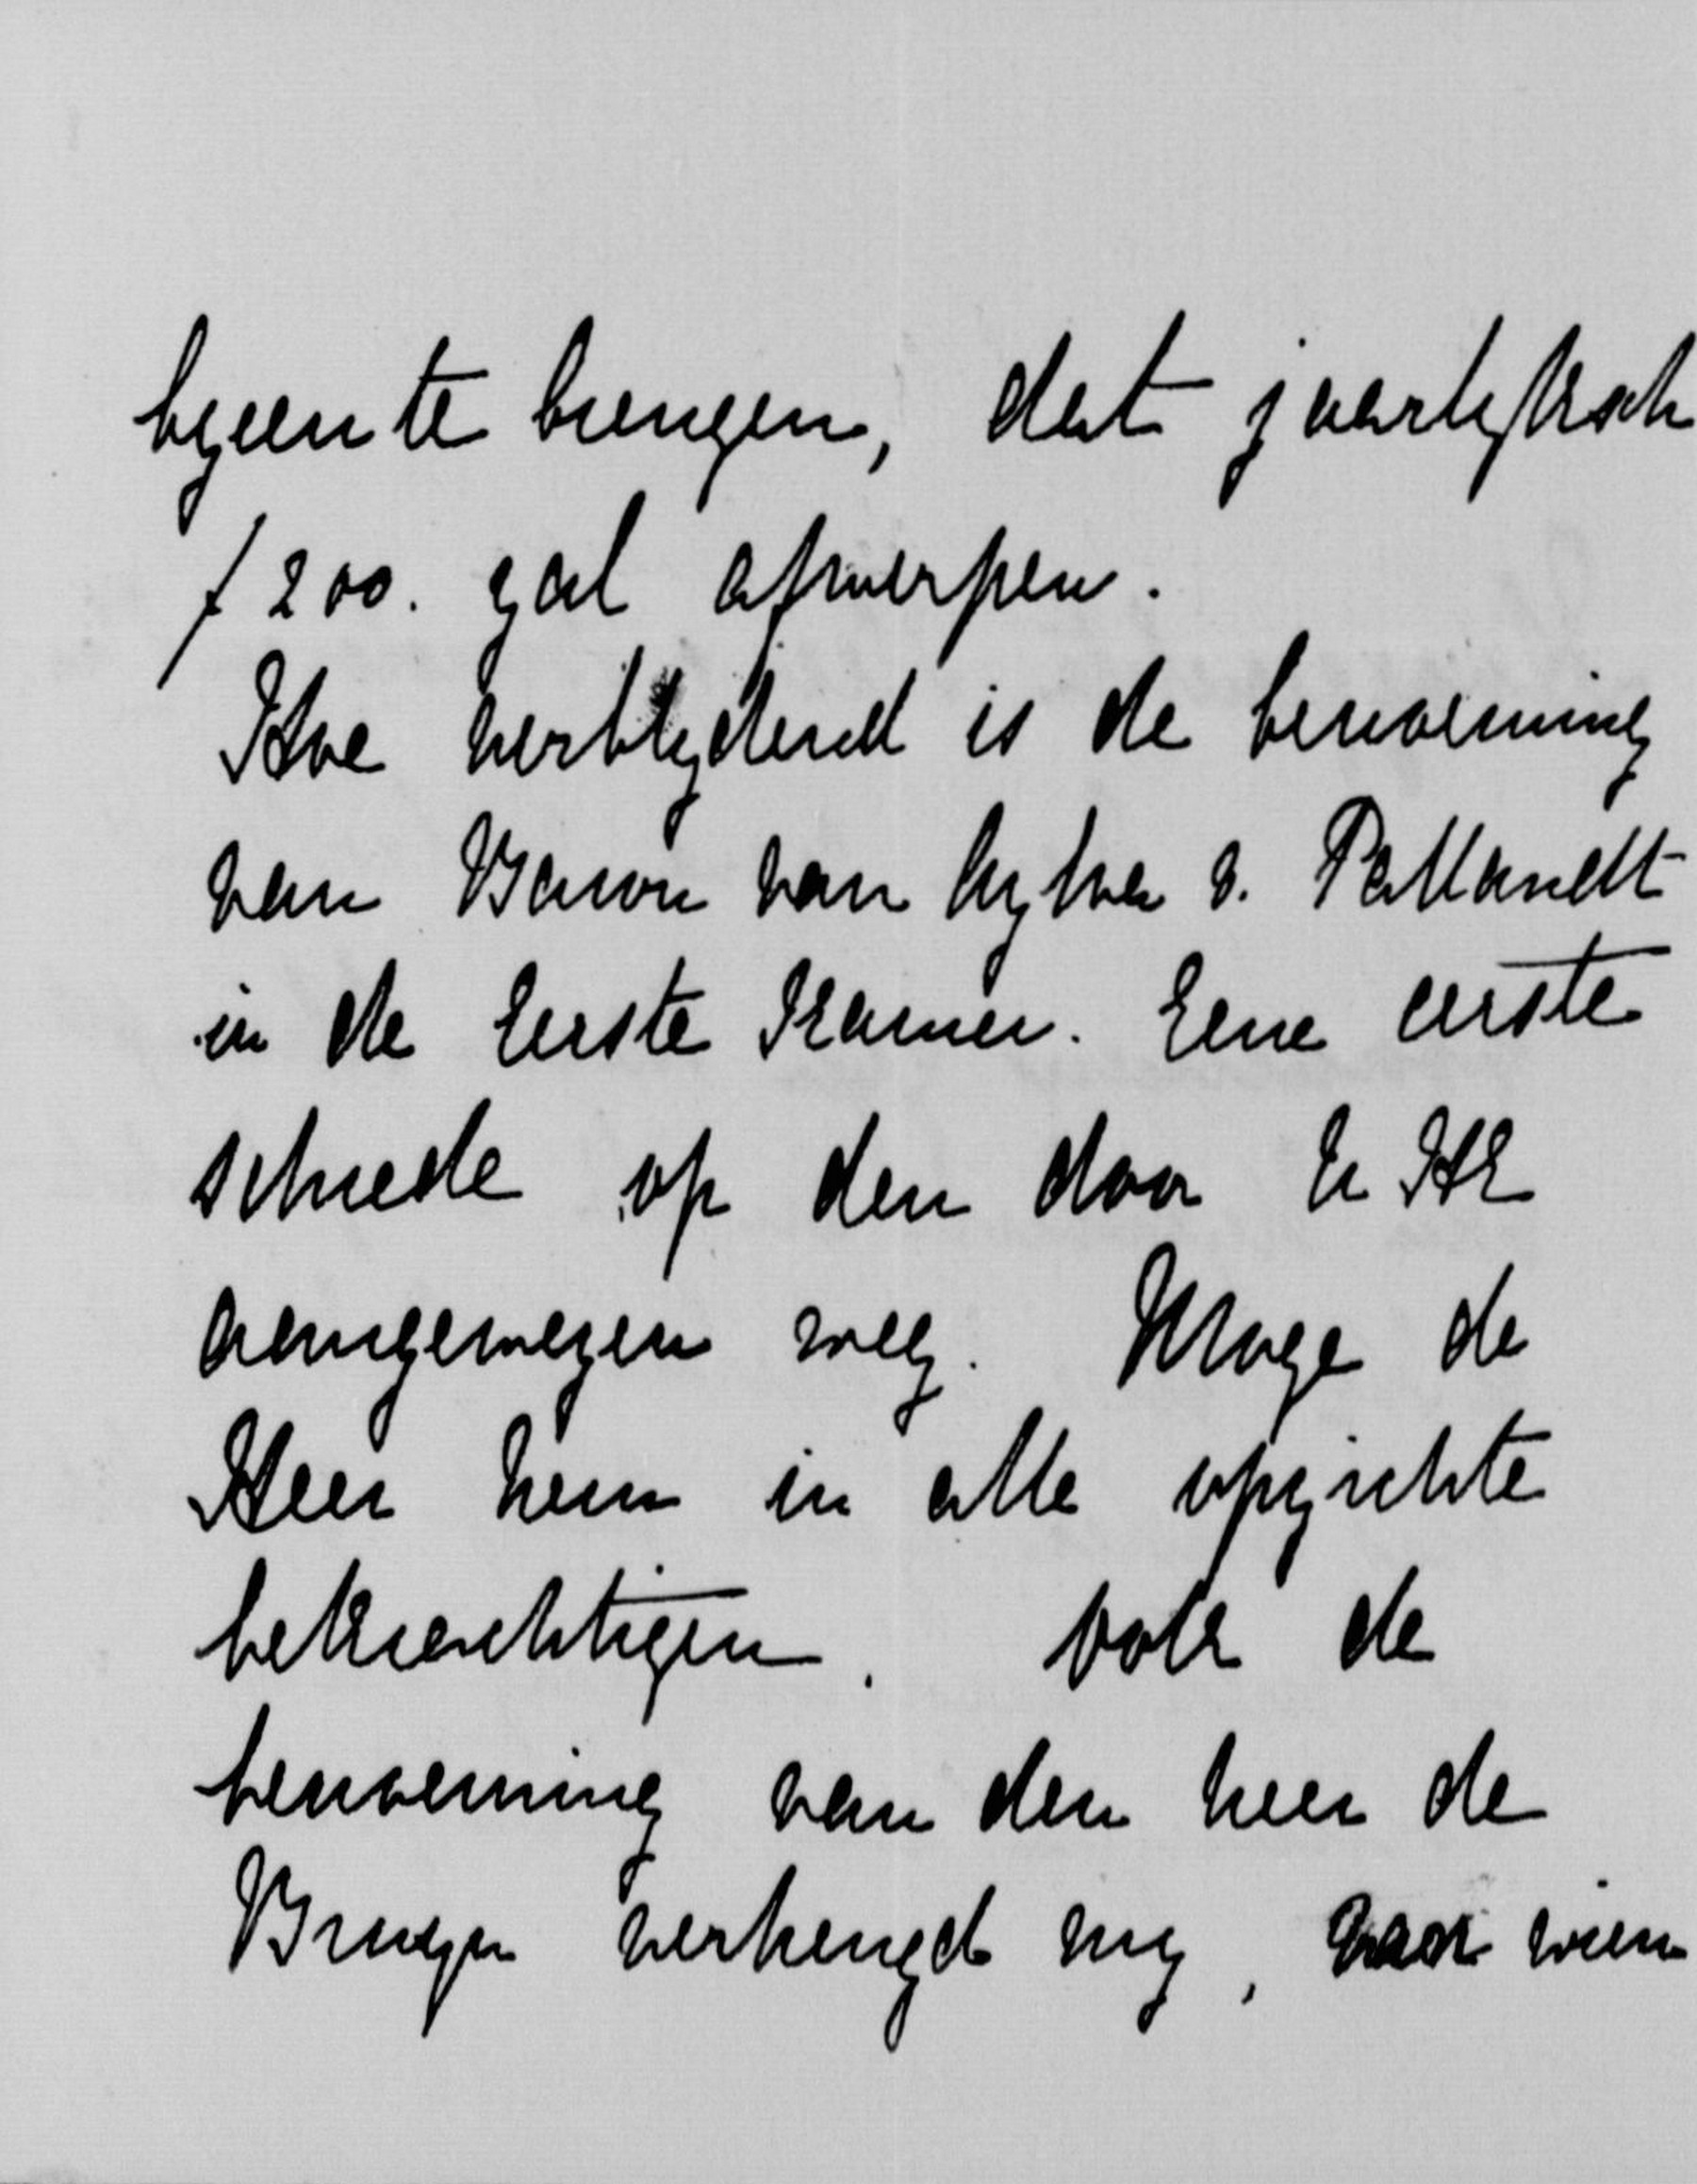 byeen te brengen, dat jaarlyksch
f 200. zal afwerpen.
Hoe verblydend is de benoeming
van Baron van Lynden v. Pallandt
in de Eerste Kamer. Eene eerste
schrede op den door U HE
aangewezen weg. Moge de
Heer hem in alle opzichte
bekrachtigen. Ook de
benoeming van den heer de
Bruyn verheugd my, daar wien